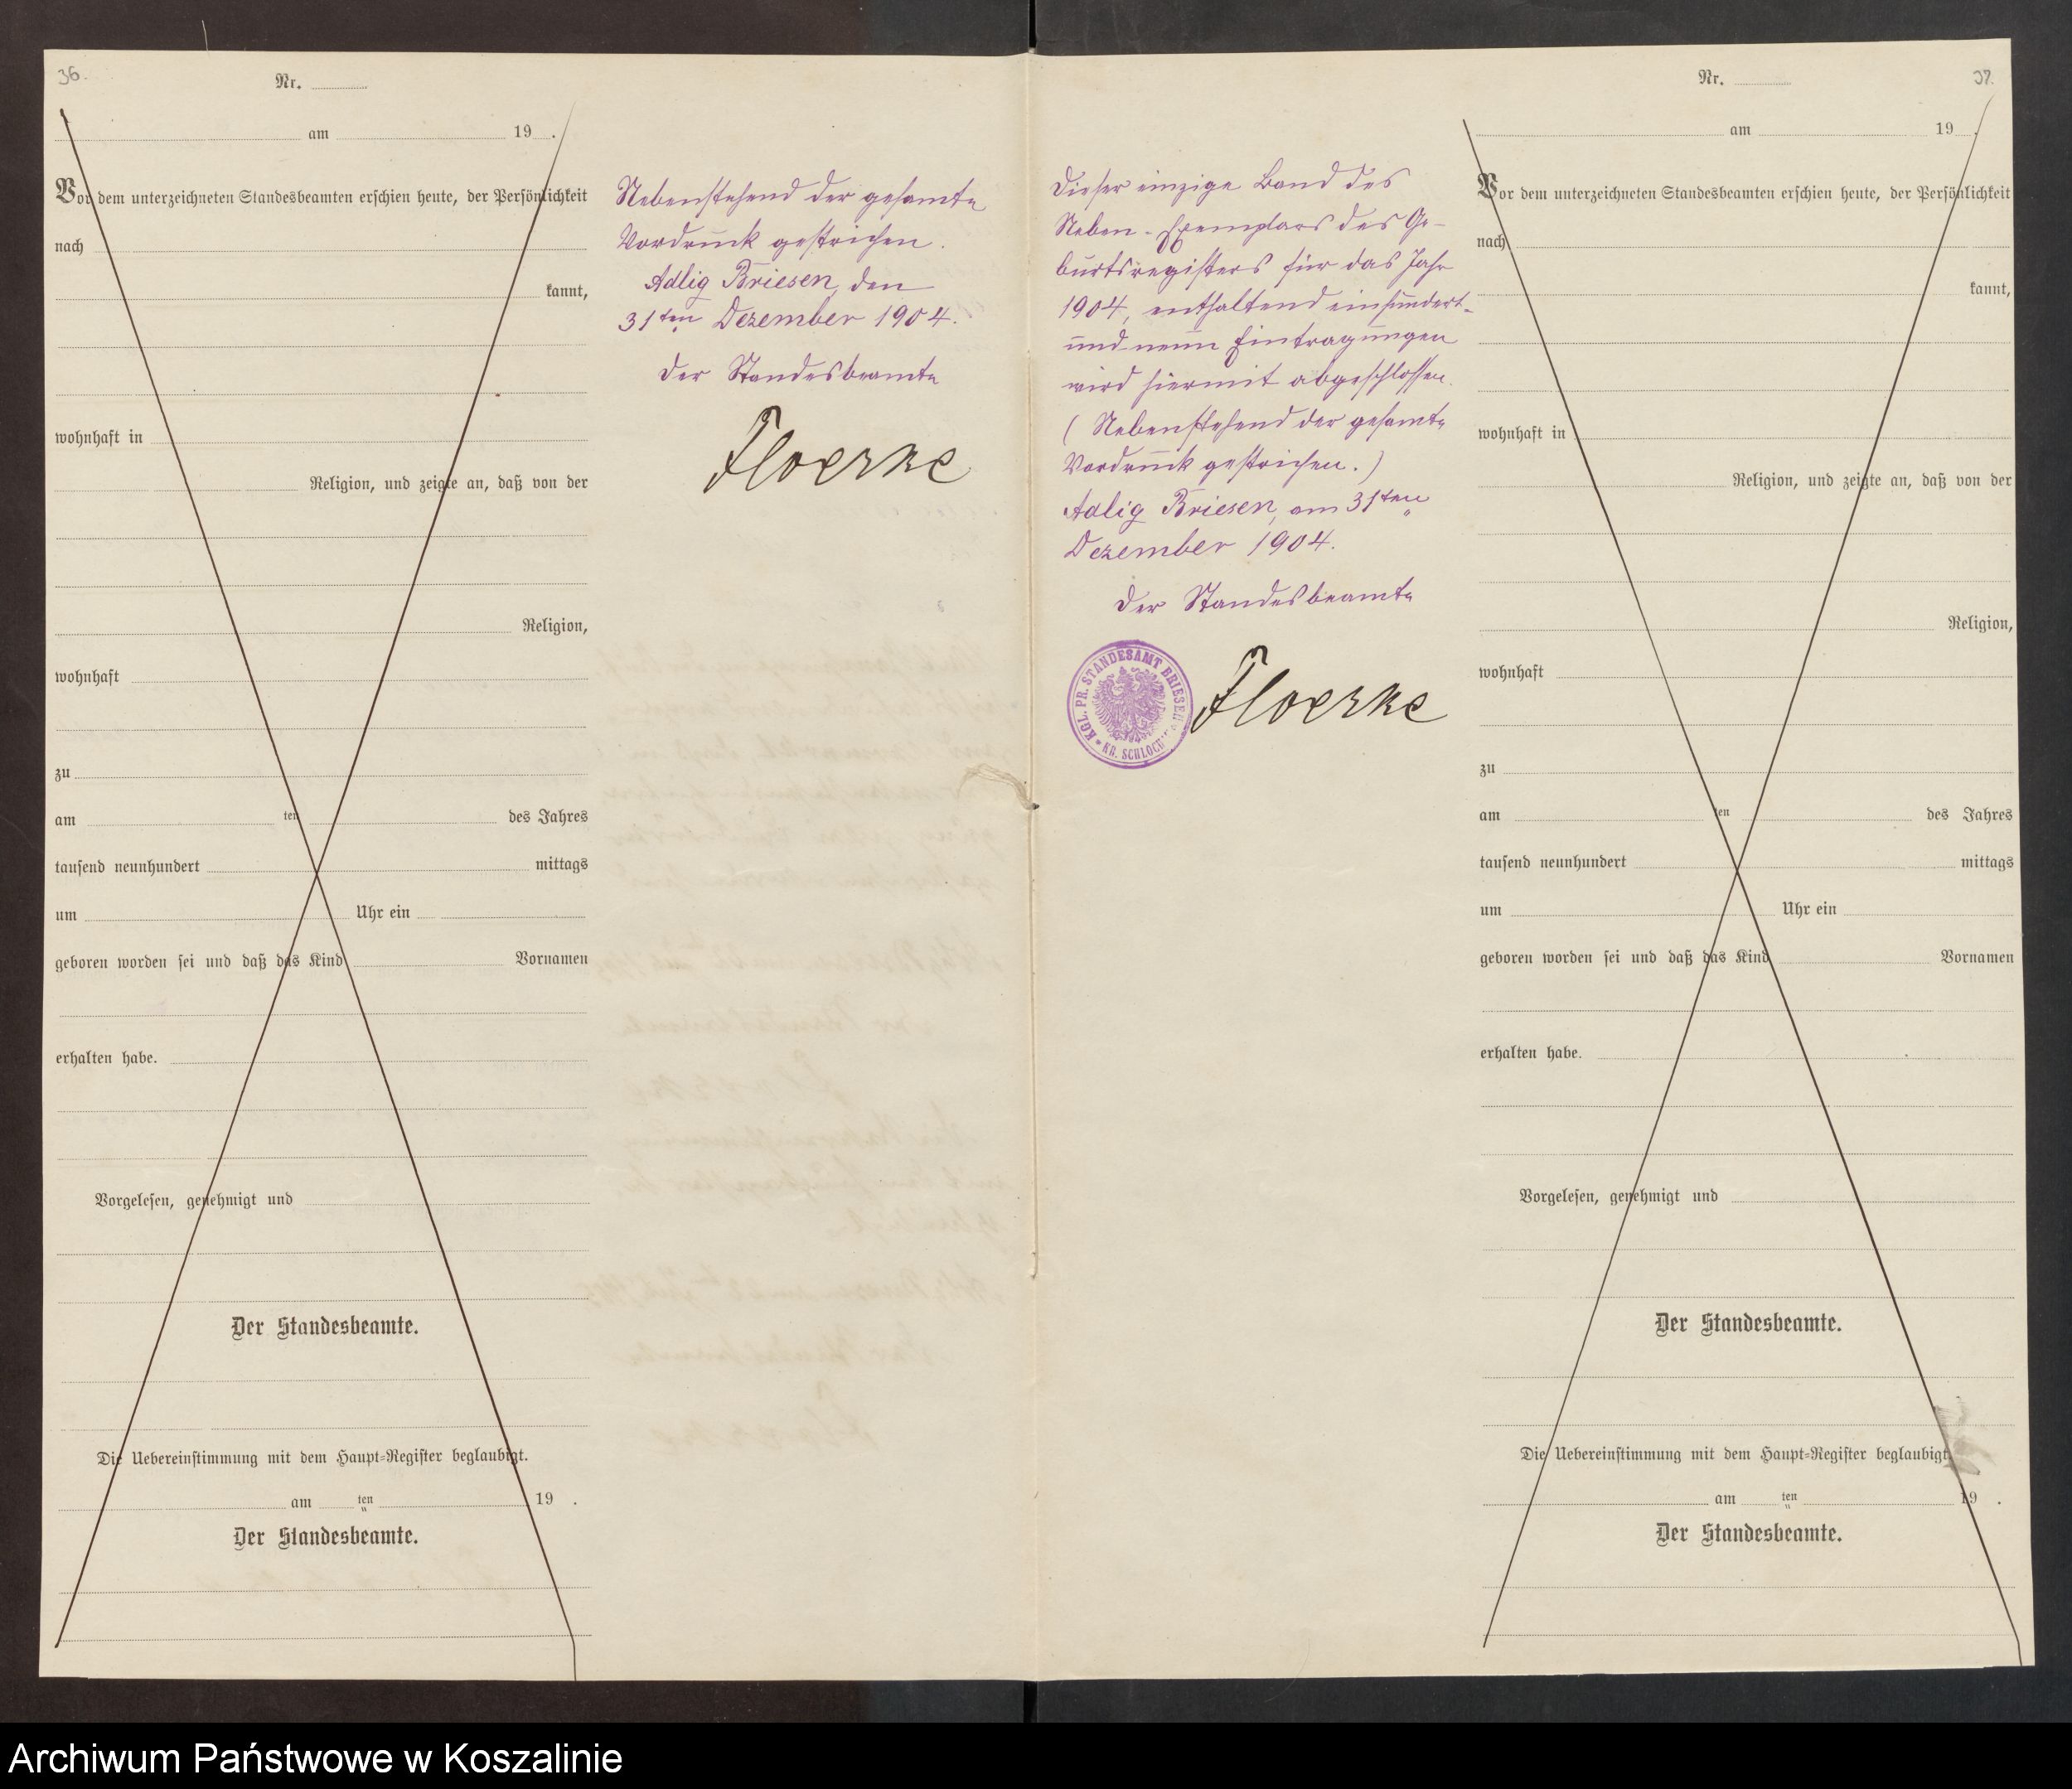 36.
Nr.
am 19 .
Vor dem unterzeichneten Standesbeamten erschien heute, der Persönlichkeit
nach
kannt,
wohnhaft in
Religion, und zeigte an, daß von der
Religion,
wohnhaft
zu
am ten des Jahres
tausend neunhundert mittags
um Uhr ein
geboren worden sei und daß das Kind Vornamen
erhalten habe.
Vorgelesen, genehmigt und
Der Standesbeamte.
Die Uebereinstimmung mit dem Haupt-Register beglaubigt.
am ten 19 .
Der Standesbeamte.
Nebenstehend der gesamte
Vordruck gestrichen.
Adlig Briesen, den
31ten Dezember 1904.
Der Standesbeamte
Floerke
Dieser einzige Band des
Neben-Exemplars des Ge-
burtsregisters für das Jahr
1904, enthaltend einhundert-
und neun Eintragungen
wird hiermit abgeschlossen.
(Nebenstehend der gesamte
Vordruck gestrichen.)
Adlig Briesen, am 31ten
Dezember 1904.
Der Standesbeamte
KGL. PR. STANDESAMT BRIESEN
KR. SCHLOCHAU
Floerke
37.
Nr.
am 19 .
Vor dem unterzeichneten Standesbeamten erschien heute, der Persönlichkeit
nach
kannt,
wohnhaft in
Religion, und zeigte an, daß von der
Religion,
wohnhaft
zu
am ten des Jahres
tausend neunhundert mittags
um Uhr ein
geboren worden sei und daß das Kind Vornamen
erhalten habe.
Vorgelesen, genehmigt und
Der Standesbeamte.
Die Uebereinstimmung mit dem Haupt-Register beglaubigt.
am ten 19 .
Der Standesbeamte.
Archiwum Państwowe w Koszalinie